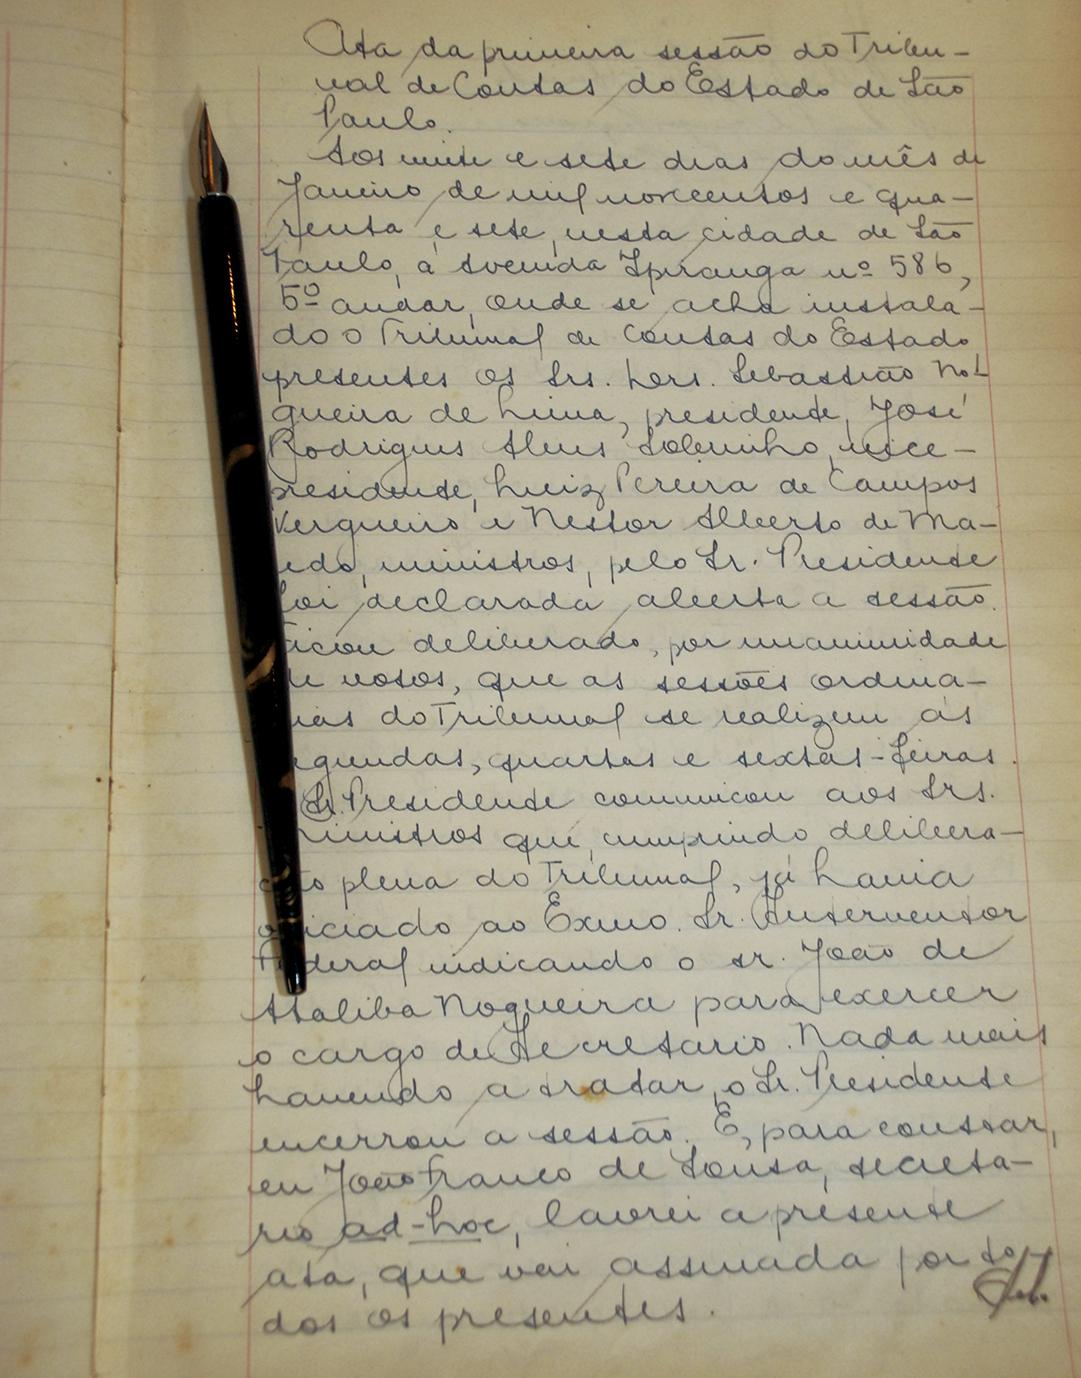 Ata da primeira sessão do Tribu-
nal de Contas do Estado de São
Paulo.
Aos vinte e sete dias do mês de
Janeiro de mil novecentos e qua-
renta e sete, nesta cidade de São
Paulo, á Avenida Ipiranga nº 586,
5º andar, onde se acha instala-
do o Tribunal de Contas do Estado
presentes os Srs. Drs. Sebastião No-
gueira de Lima, presidente, José
Rodrigues Alves Sobrinho, vice-
presidente, Luiz Pereira de Campos
Vergueiro e Nestor Alberto de Ma-
edo, ministros, pelo Sr. Presidente
foi declarada aberta a sessão.
icou deliberado, por unanimidade
de votos, que as sessões ordina-
rias do Tribunal se realizem ás
egundas, quartas e sextas-feiras.
Sr. Presidente comunicou aos Srs.
inistros que, cumprindo delibera-
ção plena do Tribunal, já havia
oficiado ao Exmo. Sr. Interventor
Federal indicando o sr. João de
Ataliba Nogueira para exercer
o cargo de Secretario. Nada mais
havendo a tratar, o Sr. Presidente
encerrou a sessão. E, para constar,
eu João Franco de Sousa, secreta-
rio ad-hoc, lavrei a presente
ata, que vai assinada por to-
dos os presentes.